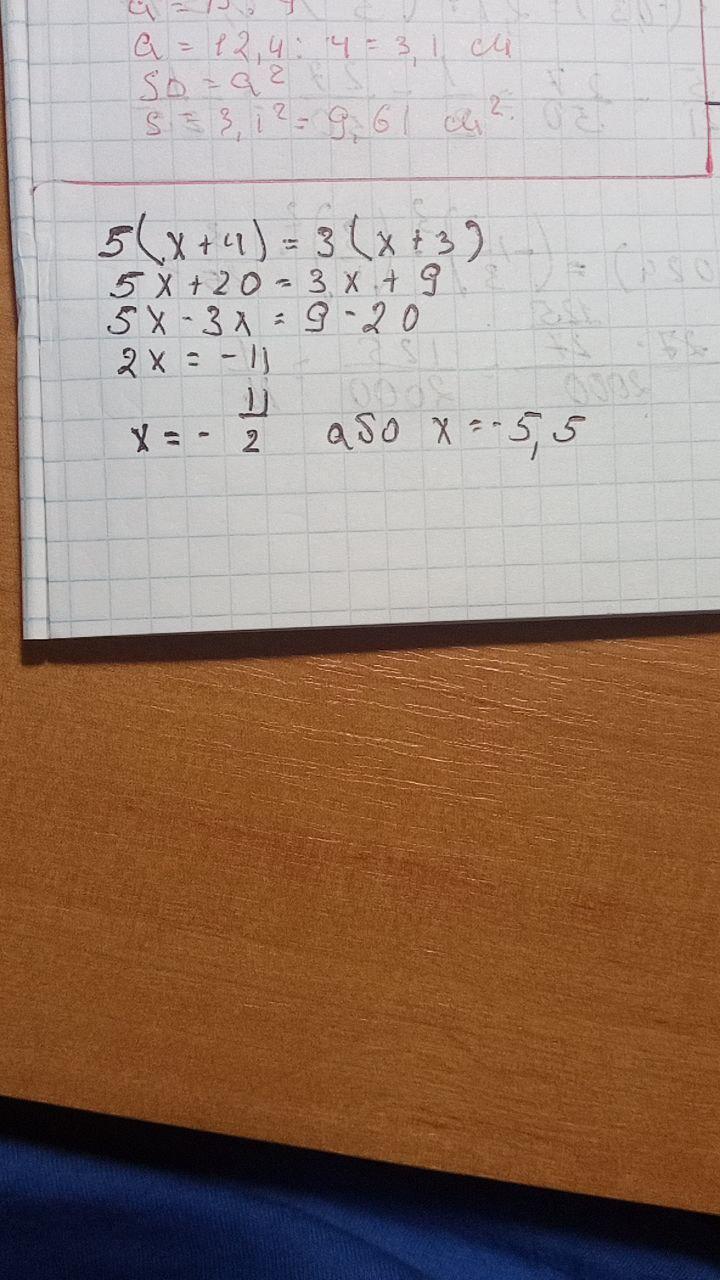 a = 12,4 : 4 = 3,1 см
S▫ = a²
S = 3,1² = 9,61 см².
5(x+4) = 3(x+3)
5x+20 = 3x+9
5x-3x = 9-20
2x = -11
x = - 11/2 або x = -5,5